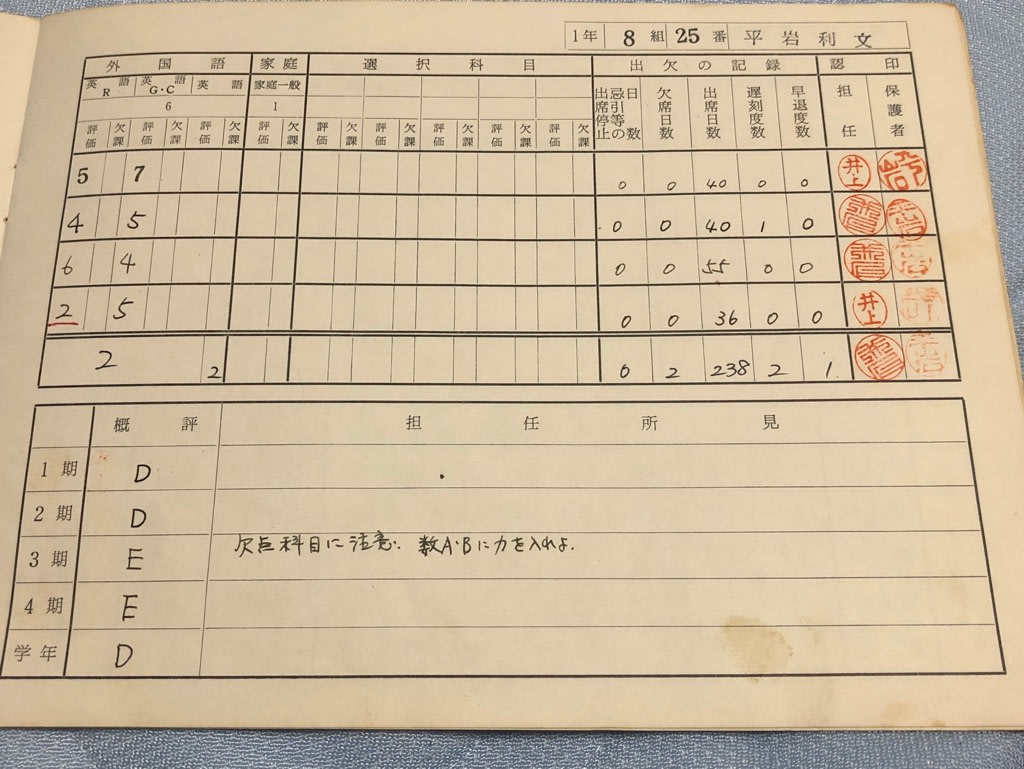 1年 8組 25番 平岩利文
外国語 家庭 選択科目 出欠の記録 認印
英語R 英語G・C 英語 家庭一般 出席停止忌引等の日数 欠席日数 出席日数 遅刻度数 早退度数 担任 保護者
6 1
評価 欠課 評価 欠課 評価 欠課 評価 欠課 評価 欠課 評価 欠課 評価 欠課 評価 欠課 評価 欠課
5 7 0 0 40 0 0 井上
4 5 0 0 40 1 0
6 4 0 0 55 0 0
2 5 0 0 36 0 0 井上
2 2 0 2 238 2 1
概評 担任所見
1期 D
2期 D
3期 E 欠点科目に注意. 数A・Bに力を入れよ.
4期 E
学年 D